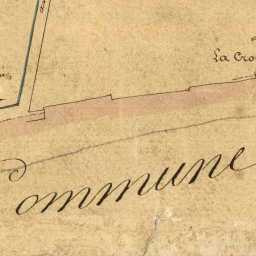 La Cro
Commune